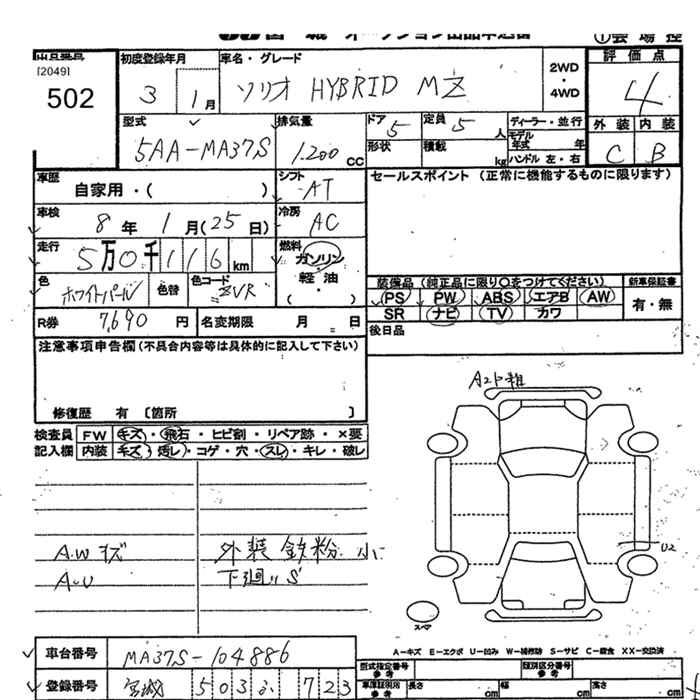 [2049]
502
初度登録年月
3 1月
車名・グレード
ソリオ HYBRID MZ
2WD
・
4WD
評価点
4
外装 内装
C B
型式
5AA-MA37S
排気量
1.200 cc
ドア 5
定員 5 人
形状
積載 kg
ディーラー・並行
モデル年式 年
ハンドル 左・右
車歴
自家用・( )
シフト
AT
セールスポイント (正常に機能するものに限ります)
車検
8年 1月(25日)
冷房
AC
走行
5万0千116km
燃料
ガソリン
・
軽・油
( )
色
ホワイトパール
色替
色コード
ZVR
装備品 (純正品に限り○をつけてください)
PS PW ABS エアB AW
SR ナビ TV カワ
新車保証書
有・無
R券 7,690 円
名変期限 月 日
後日品
注意事項申告欄 (不具合内容等は具体的に記入して下さい)
修復歴 有 〔箇所 〕
検査員 FW キズ・飛石・ヒビ割・リペア跡・×要
記入欄 内装 キズ・汚レ・コゲ・穴・スレ・キレ・破レ
A2ト粗
A.W キズ
外装 鉄粉 小
A-U
下廻リ S
U2
スペア
A-キズ E-エクボ U-凹み W-補修跡 S-サビ C-腐食 XX-交換済
車台番号 MA37S-104886
型式指定番号
参考
類別区分番号
参考
登録番号 宮城 503 ふ 723
長さ cm
幅 cm
高さ cm